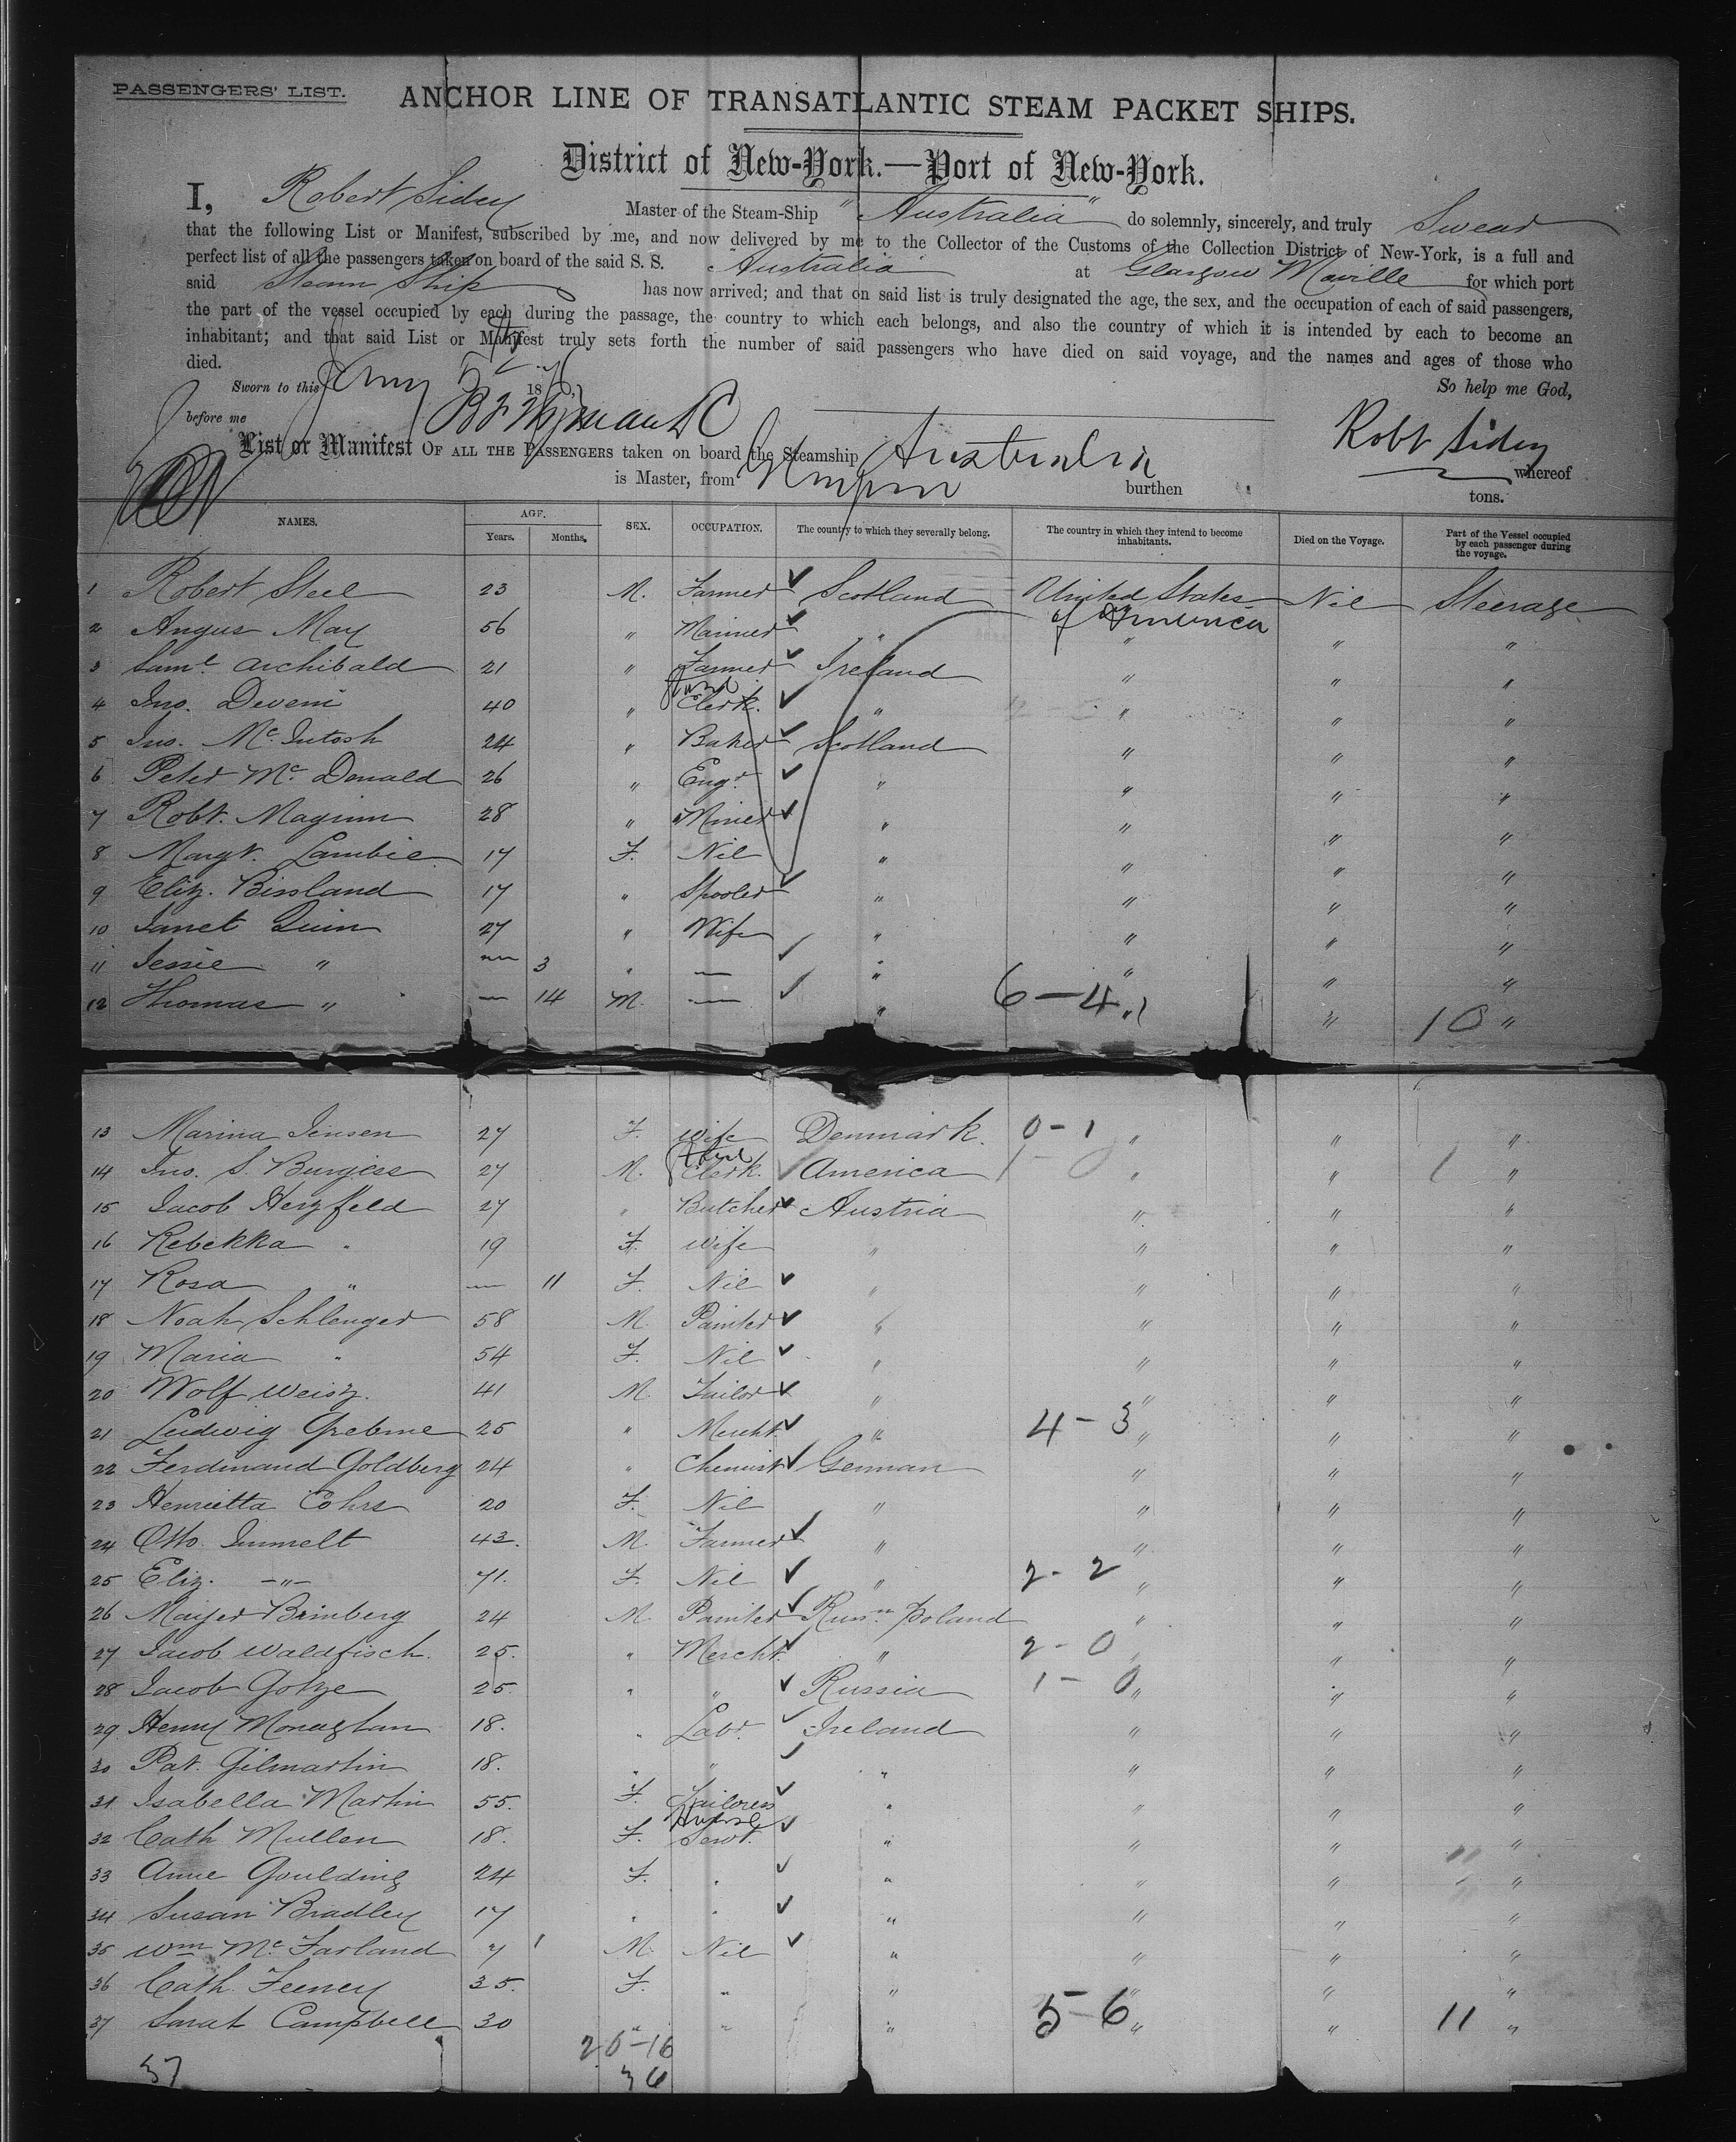 PASSENGERS' LIST.
ANCHOR LINE OF TRANSATLANTIC STEAM PACKET SHIPS.
District of New-York.—Port of New-York.
I, Robert Sidey Master of the Steam-Ship "Australia" do solemnly, sincerely, and truly Swear
that the following List or Manifest, subscribed by me, and now delivered by me to the Collector of the Customs of the Collection District of New-York, is a full and
perfect list of all the passengers taken on board of the said S. S. Australia at Glasgow Moville for which port
said Steam Ship has now arrived; and that on said list is truly designated the age, the sex, and the occupation of each of said passengers,
the part of the vessel occupied by each during the passage, the country to which each belongs, and also the country of which it is intended by each to become an
inhabitant; and that said List or Manifest truly sets forth the number of said passengers who have died on said voyage, and the names and ages of those who
died.
So help me God,
Sworn to this 18
before me
Robt Sidey
List or Manifest OF ALL THE PASSENGERS taken on board the Steamship Australia whereof
is Master, from burthen tons.
NAMES. AGE. Years. Months. SEX. OCCUPATION. The country to which they severally belong. The country in which they intend to become inhabitants. Died on the Voyage. Part of the Vessel occupied by each passenger during the voyage.
1 Robert Steel 23 M. Farmer ✓ Scotland United States of America Nil Steerage
2 Angus May 56 " Mariner ✓ " " " "
3 Saml. Archibald 21 " Farmer ✓ Ireland " " "
4 Jno. Deveni 40 " Clerk. ✓ " " " "
5 Jno. Mc.Intosh 24 " Baker ✓ Scotland " " "
6 Peter Mc. Donald 26 " Engr. ✓ " " " "
7 Robt. Maginn 28 " Miner ✓ " " " "
8 Margt. Lambie 17 F. Nil " " " "
9 Eliz. Bissland 17 " Spooler ✓ " " " "
10 Janet Quin 27 " Wife " " " "
11 Jessie " — 3 " — ✓ " " " "
12 Thomas " — 14 M. — ✓ " 6-4 " " 10 "
13 Marina Jensen 27 F. Wife Denmark. 0-1 " " "
14 Jno. S. Burgess 27 M. Clerk. ✓ America 1-0 " " 1 "
15 Jacob Herzfeld 27 " Butcher ✓ Austria " " "
16 Rebekka " 19 F. Wife " " " "
17 Rosa " — 11 F. Nil ✓ " " " "
18 Noah Schlenger 58 M. Painter ✓ " " " "
19 Maria " 54 F. Nil ✓ " " " "
20 Wolf Weisz. 41 M. Tailor ✓ " " " "
21 Ludwig Grebme 25 " Mercht. ✓ " 4-3 " " "
22 Ferdinand Goldberg 24 " Chemist ✓ German " " "
23 Henrietta Cohrs 20 F. Nil " " " "
24 Otto Immelt 43. M. Farmer ✓ " " " "
25 Eliz. -"- 71. F. Nil ✓ " 2-2 " " "
26 Mayer Brimberg 24 M. Painter ✓ Russn. Poland " " "
27 Jacob Waldfisch. 25. " Mercht. ✓ " 2-0 " " "
28 Jacob Gotze 25. " " ✓ Russia 1-0 " " "
29 Henry Monaghan 18. " Labr. ✓ Ireland " " "
30 Pat. Gilmartin 18. " " ✓ " " " "
31 Isabella Martin 55. F. Tailoress ✓ " " " "
32 Cath Mullen 18. F. Servt. ✓ " " " "
33 Anne Goulding 24 F. " ✓ " " " "
34 Susan Bradley 17 " " ✓ " " " "
35 Wm Mc. Farland 7 1 M. Nil ✓ " " " "
36 Cath. Feeney 35. F. " " " " "
37 Sarah Campbell 30 " " " 5-6 " " 11 "
20-16
37 36